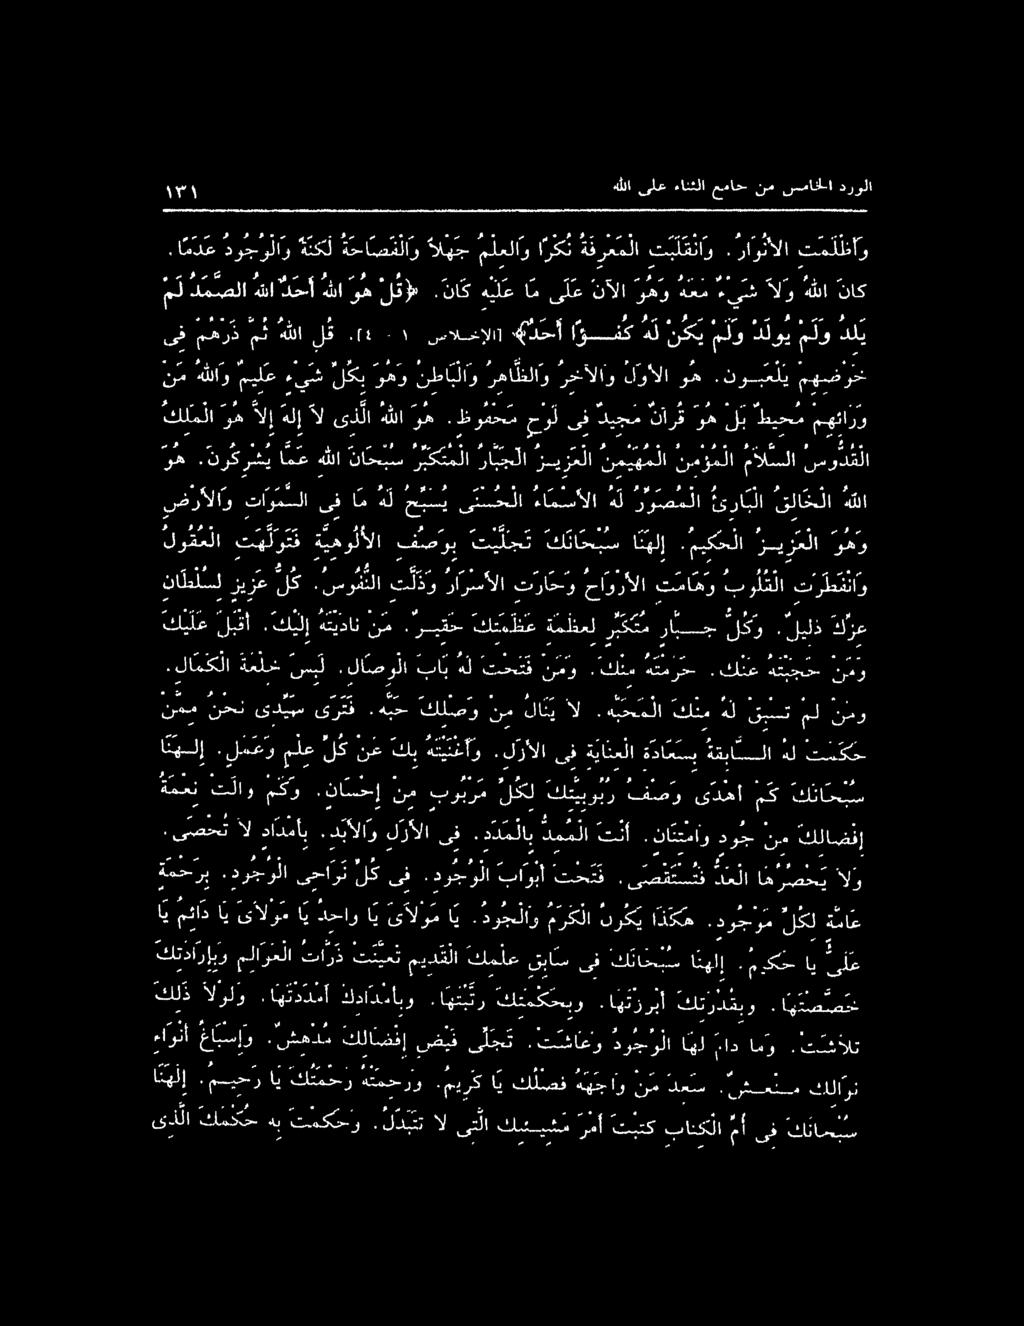 الورد الخامس من جامع الثناء على الله
١٣١
وَأَظْلَمَتِ الأَنْوَارُ. وَانْقَلَبَتِ الْمَعْرِفَةُ نُكْرًا وَالعِلْمُ جَهْلاً وَالْفَصَاحَةُ لُكْنَةً وَالْوُجُودُ عَدَمًا.
كَانَ اللهُ وَلاَ شَيْءَ مَعَهُ وَهُوَ الآنَ عَلَى مَا عَلَيْهِ كَانَ. ﴿قُلْ هُوَ اللهُ أَحَدٌ اللهُ الصَّمَدُ لَمْ
يَلِدْ وَلَمْ يُولَدْ وَلَمْ يَكُنْ لَهُ كُفُــؤًا أَحَدٌ﴾ [الإخلاص ١ - ٤]. قُلِ اللهُ ثُمَّ ذَرْهُمْ فِى
خَوْضِهِمْ يَلْعَبُــونَ. هُوَ الأَوَّلُ وَالآخِرُ وَالظَّاهِرُ وَالْبَاطِنُ وَهُوَ بِكُلِّ شَيْءٍ عَلِيمٌ وَاللهُ مِنْ
وَرَائِهِمْ مُحِيطٌ بَلْ هُوَ قُرْآنٌ مَجِيدٌ فِى لَوْحٍ مَحْفُوظٍ. هُوَ اللهُ الَّذِى لاَ إِلَهَ إِلاَّ هُوَ الْمَلِكُ
الْقُدُّوسُ السَّلاَمُ الْمُؤْمِنُ الْمُهَيْمِنُ الْعَزِيــزُ الْجَبَّارُ الْمُتَكَبِّرُ سُبْحَانَ اللهِ عَمَّا يُشْرِكُونَ. هُوَ
اللهُ الْخَالِقُ الْبَارِئُ الْمُصَوِّرُ لَهُ الأَسْمَاءُ الْحُسْنَى يُسَبِّحُ لَهُ مَا فِى السَّمَوَاتِ وَالأَرْضِ
وَهُوَ الْعَزِيــزُ الْحَكِيمُ. إِلَهَنَا سُبْحَانَكَ تَجَلَّيْتَ بِوَصْفِ الأُلُوهِيَّةِ فَتَوَلَّهَتِ الْعُقُولُ
وَانْفَطَرَتِ الْقُلُوبُ وَهَامَتِ الأَرْوَاحُ وَحَارَتِ الأَسْرَارُ وَذَلَّتِ النُّفُوسُ. كُلُّ عَزِيزٍ لِسُلْطَانِ
عِزِّكَ ذَلِيلٌ. وَكُلُّ جَــبَّارٍ مُتَكَبِّرٍ لِعَظَمَةِ عَظَمَتِكَ حَقِيــرٌ. مَنْ نَادَيْتَهُ إِلَيْكَ. أَقْبَلَ عَلَيْكَ
وَمَنْ حَجَبْتَهُ عَنْكَ. حَرَمْتَهُ مِنْكَ. وَمَنْ فَتَحْتَ لَهُ بَابَ الْوِصَالِ. لَبِسَ خِلْعَةَ الْكَمَالِ.
وَمَنْ لَمْ تَسْبِقْ لَهُ مِنْكَ الْمَحَبَّه. لاَ يَنَالُ مِنْ وَصْلِكَ حَبَّه. فَتَرَى سَيِّدِى نَحْنُ مِمَّنْ
حَكَمْتَ لَهُ السَّــابِقَةُ بِسَعَادَةِ الْعِنَايَةِ فِى الأَزَلِ. وَأَغْنَيْتَهُ بِكَ عَنْ كُلِّ عِلْمٍ وَعَمَلٍ. إِلَــهَنَا
سُبْحَانَكَ كَمْ أَهْدَى وَصْفُ رُبُوبِيَّتِكَ لِكُلِّ مَرْبُوبٍ مِنْ إِحْسَانٍ. وَكَمْ وَالَتْ نِعْمَةُ
إِفْضَالِكَ مِنْ جُودٍ وَامْتِنَانٍ. أَنْتَ الْمُمِدُّ بِالْمَدَدِ. فِى الأَزَلِ وَالأَبَدِ. بِأَمْدَادٍ لاَ تُحْصَى.
وَلاَ يَحْصُرُهَا الْعَدُّ فَتُسْتَقْصَى. فَتَحْتَ أَبْوَابَ الْوُجُودِ. فِى كُلِّ نَوَاحِى الْوُجُودِ. بِرَحْمَةٍ
عَامَّةٍ لِكُلِّ مَوْجُودٍ. هَكَذَا يَكُونُ الْكَرَمُ وَالْجُودُ. يَا مَوْلاَىَ يَا وَاحِدُ يَا مَوْلاَىَ يَا دَائِمُ يَا
عَلِىُّ يَا حَكِيمُ. إِلَهَنَا سُبْحَانَكَ فِى سَابِقِ عِلْمِكَ الْقَدِيمِ تَعَيَّنَتْ ذَرَّاتُ الْعَوَالِمِ وَبِإِرَادَتِكَ
خَصَّصْتَهَا. وَبِقُدْرَتِكَ أَبْرَزْتَهَا. وَبِحِكْمَتِكَ رَتَّبْتَهَا. وَبِأَمْدَادِكَ أَمْدَدْتَهَا. وَلَوْلاَ ذَلِكَ
تَلاَشَتْ. وَمَا دَامَ لَهَا الْوُجُودُ وَعَاشَتْ. تَجَلِّى فَيْضِ إِفْضَالِكَ مُدْهِشٌ. وَإِسْبَاغُ أَنْوَاءِ
نَوَالِكَ مُــنْعِــشٌ. سَعِدَ مَنْ وَاجَهَهُ فَضْلُكَ يَا كَرِيمُ. وَرَحِمَتْهُ رَحْمَتُكَ يَا رَحِيــمُ. إِلَهَنَا
سُبْحَانَكَ فِى أُمِّ الْكِتَابِ كَتَبْتَ أَمْرَ مَشِيــئَتِكَ الَّتِى لاَ تَتَبَدَّلُ. وَحَكَمْتَ بِهِ حُكْمَكَ الَّذِى